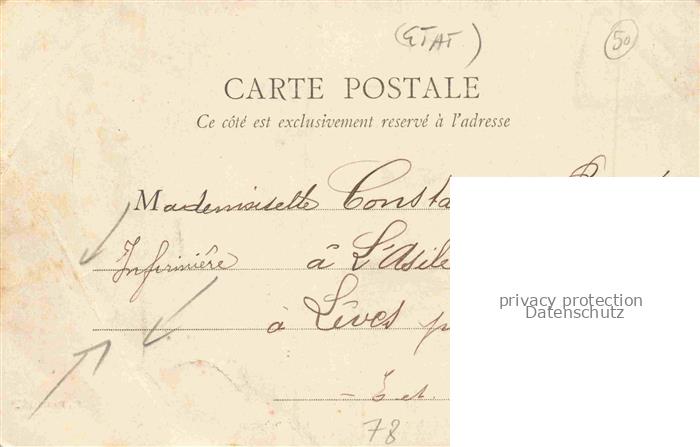 (ETAT) 50
CARTE POSTALE
Ce côté est exclusivement reservé à l'adresse
Mademoiselle Consta
Infirmière à L'Asile
à Lèves p
privacy protection
Datenschutz
- E et
78